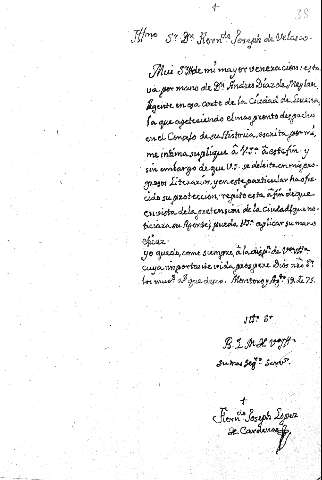 38
Yll.mo S.r D.n Fern.do Joseph de Velasco.
Mui S.r M. de mi mayor veneracion: esta
va por mano de D.n Andres Diaz de
Agente en esa corte de la Ciudad de Lucena,
la que apeteciendo el mas pronto despacho
en el Consejo de su Historia, escrita por mi,
me intima suplique à V.S. à este fin. y
sin embargo de que V.S. se deleita en mis pro-
gresos Literarios, y en este particular ha ofre-
cido su proteccion, repito esta à fin de que
en vista de la pretension de la Ciudad, que no-
ticiara su Agente, pueda V.S. aplicar su mano
eficaz.
yo quedo, como siempre, à la disp.n de
cuya importante vida prospere Dios
los mu.s a.s que deseo. Montoro y Ag.to 19 de 75.
S.r
B. L. M. de V.S.
su mas seg.o serv.r
Fern.do Joseph Lopez
de Cardenas